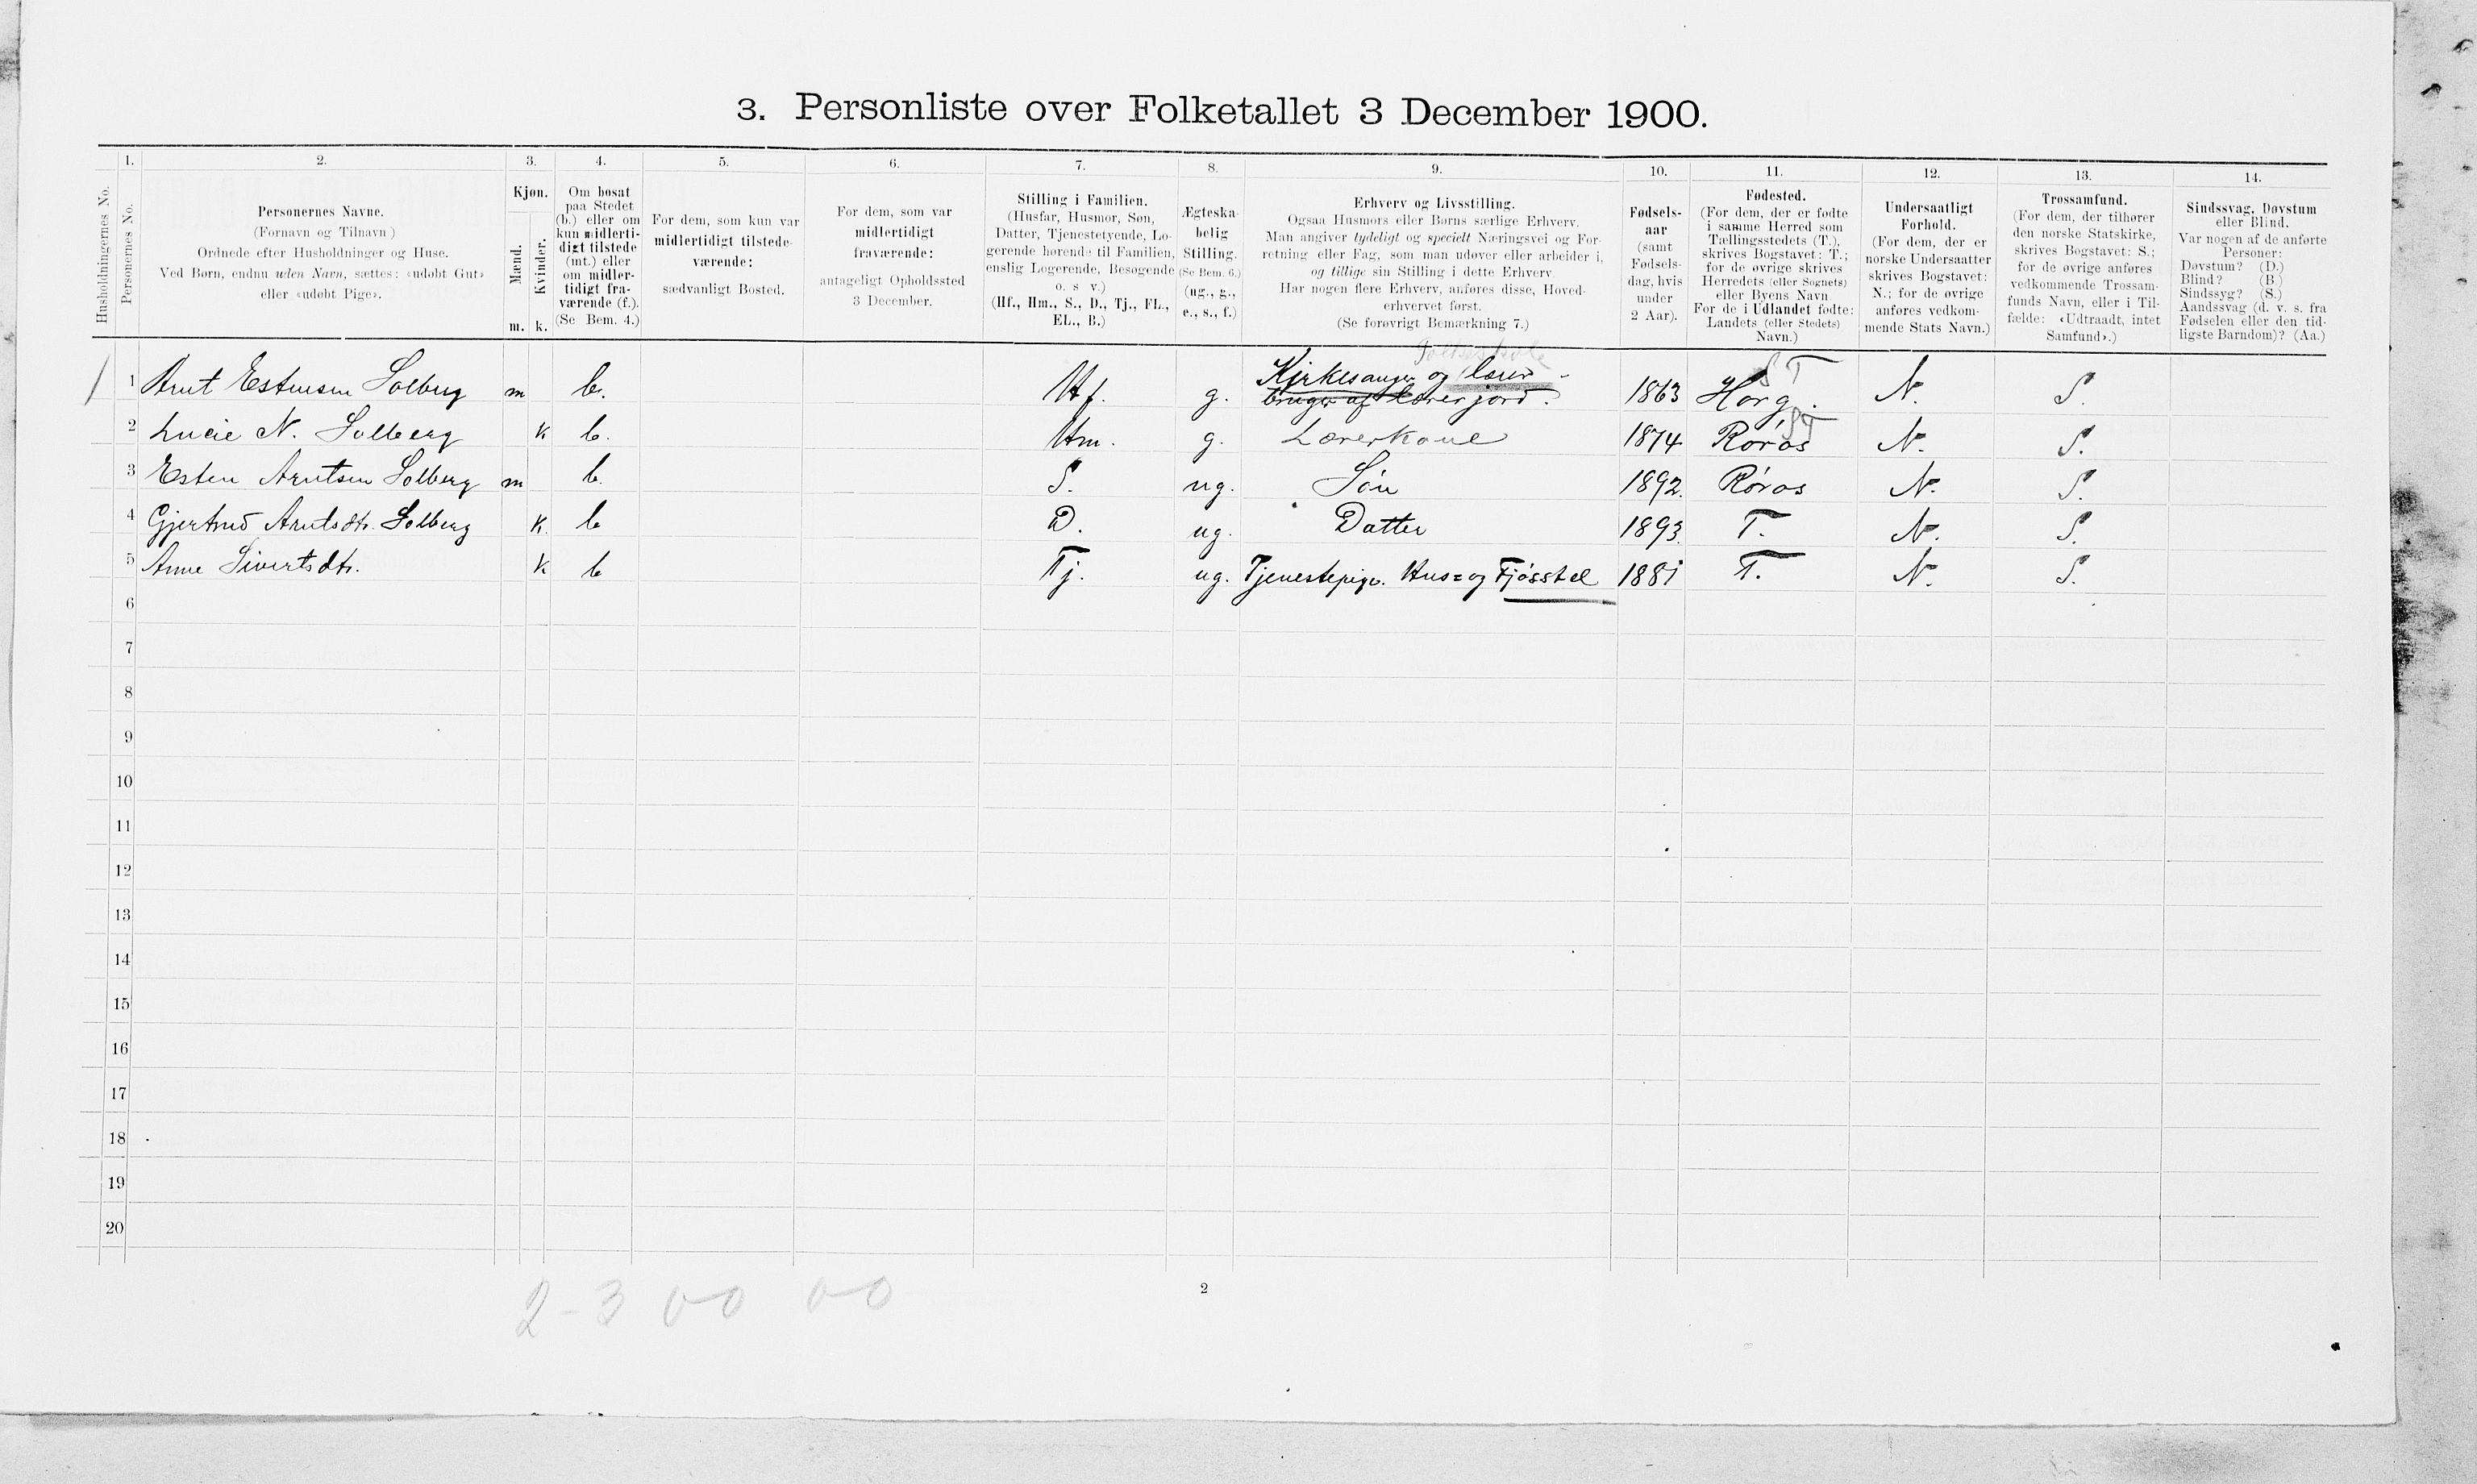 3. Personliste over Folketallet 3 December 1900.
1. 2. 3. 4. 5. 6. 7. 8. 9. 10. 11. 12. 13. 14.
Husholdningernes No.
Personernes No.
Personernes Navne.
(Fornavn og Tilnavn)
Ordnede efter Husholdninger og Huse.
Ved Børn, endnu uden Navn, sættes: «udøbt Gut»
eller «udøbt Pige».
Kjøn.
Mænd.
Kvinder.
m. k.
Om bosat
paa Stedet
(b.) eller om
kun midlerti-
digt tilstede
(mt.) eller
om midler-
tidigt fra-
værende (f.).
(Se Bem. 4.)
For dem, som kun var
midlertidigt tilstede-
værende:
sædvanligt Bosted.
For dem, som var
midlertidigt
fraværende:
antageligt Opholdssted
3 December.
Stilling i Familien.
(Husfar, Husmor, Søn,
Datter, Tjenestetyende, Lo-
gerende hørende til Familien,
enslig Logerende, Besøgende
o. s v.)
(Hf., Hm., S., D., Tj., FL.,
EL., B.)
Ægteska-
belig
Stilling.
(Se Bem. 6.)
(ug., g.,
e., s., f.)
Erhverv og Livsstilling.
Ogsaa Husmors eller Børns særlige Erhverv.
Man angiver tydeligt og specielt Næringsvei og For-
retning eller Fag, som man udøver eller arbeider i,
og tillige sin Stilling i dette Erhverv.
Har nogen flere Erhverv, anføres disse, Hoved-
erhvervet først.
(Se forøvrigt Bemærkning 7.)
Fødsels-
aar
(samt
Fødsels-
dag, hvis
under
2 Aar).
Fødested.
(For dem, der er fødte
i samme Herred som
Tællingsstedets (T.),
skrives Bogstavet: T.;
for de øvrige skrives
Herredets (eller Sognets)
eller Byens Navn.
For de i Udlandet fødte:
Landets (eller Stedets)
Navn.)
Undersaatligt
Forhold.
(For dem, der er
norske Undersaatter
skrives Bogstavet:
N.; for de øvrige
anføres vedkom-
mende Stats Navn.)
Trossamfund.
(For dem, der tilhører
den norske Statskirke,
skrives Bogstavet: S.;
for de øvrige anføres
vedkommende Trossam-
funds Navn, eller i Til-
fælde: «Udtraadt, intet
Samfund».)
Sindssvag, Døvstum
eller Blind.
Var nogen af de anførte
Personer:
Døvstum? (D.)
Blind? (B.)
Sindssyg? (S.)
Aandssvag (d. v. s. fra
Fødselen eller den tid-
ligste Barndom)? (Aa.)
Folkeskole
ST
1 Arnt Estensen Solberg m b. Hf. g. Kirkesanger og lærer - 1863 Horg. N. S.
bruger af lærerjord.
ST
2 Lucie N. Solberg k b. Hm. g. Lærerkone 1874 Røros N. S.
3 Esten Arntsen Solberg m b. S. ug. Søn 1892. Røros N. S.
4 Gjertrud Arntsdtr. Solberg k. b D. ug. Datter 1893. T. N. S.
5 Anne Sivertsdtr. k b Tj. ug. Tjenestepige. Hus= og Fjøsstel 1881 T. N. S.
6
7
8
9
10
11
12
13
14
15
16
17
18
19
20
2-3 00 00
2